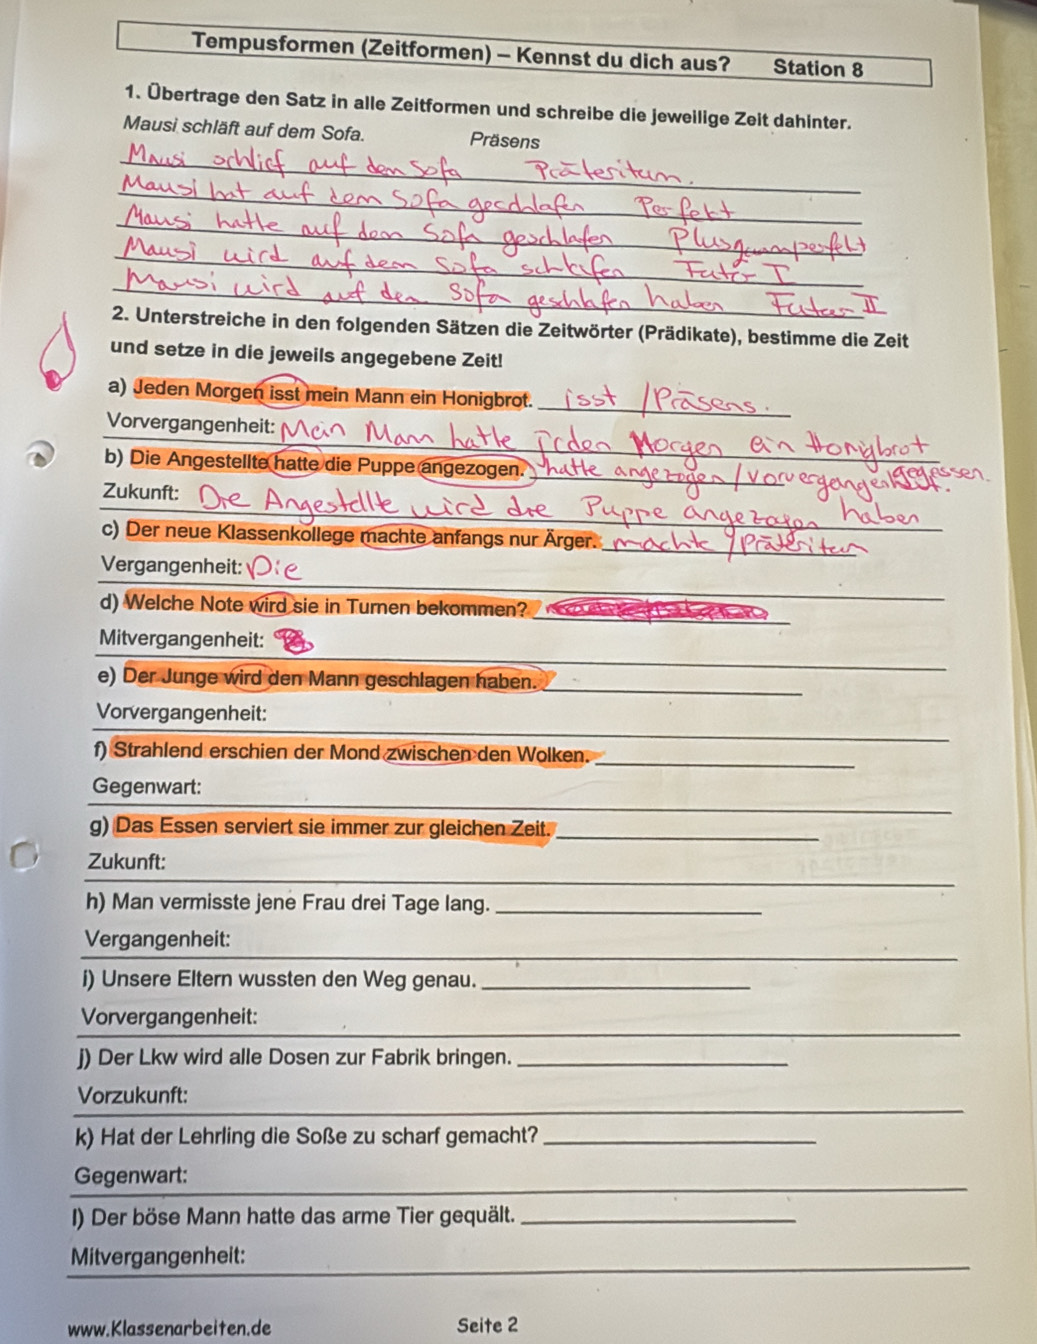 Tempusformen (Zeitformen) – Kennst du dich aus? Station 8
1. Übertrage den Satz in alle Zeitformen und schreibe die jeweilige Zeit dahinter.
Mausi schläft auf dem Sofa. Präsens
Mausi schlief auf dem Sofa Präteritum.
Mausi hat auf dem Sofa geschlafen Perfekt
Mausi hatte auf dem Sofa geschlafen Plusquamperfekt
Mausi wird auf dem Sofa schlafen Futur I
Mausi wird auf dem Sofa geschlafen haben Futur II
2. Unterstreiche in den folgenden Sätzen die Zeitwörter (Prädikate), bestimme die Zeit
und setze in die jeweils angegebene Zeit!
a) Jeden Morgen isst mein Mann ein Honigbrot. isst /Präsens.
Vorvergangenheit: Mein Mann hatte jeden Morgen ein Honigbrot gegessen.
b) Die Angestellte hatte die Puppe angezogen. hatte angezogen / Vorvergangenheit.
Zukunft: Die Angestellte wird die Puppe angezogen haben
c) Der neue Klassenkollege machte anfangs nur Ärger. machte / Präteritum
Vergangenheit: Die
d) Welche Note wird sie in Turnen bekommen?
Mitvergangenheit:
e) Der Junge wird den Mann geschlagen haben.
Vorvergangenheit:
f) Strahlend erschien der Mond zwischen den Wolken.
Gegenwart:
g) Das Essen serviert sie immer zur gleichen Zeit.
Zukunft:
h) Man vermisste jene Frau drei Tage lang.
Vergangenheit:
i) Unsere Eltern wussten den Weg genau.
Vorvergangenheit:
j) Der Lkw wird alle Dosen zur Fabrik bringen.
Vorzukunft:
k) Hat der Lehrling die Soße zu scharf gemacht?
Gegenwart:
l) Der böse Mann hatte das arme Tier gequält.
Mitvergangenheit:
www.Klassenarbeiten.de Seite 2